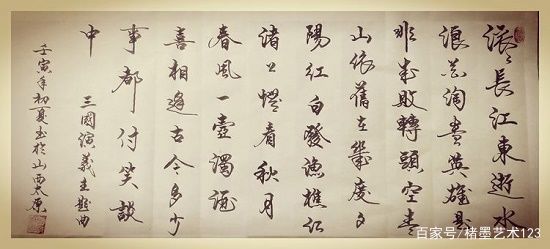 滚〻長江東逝水
浪花淘盡英雄是
非成敗轉頭空青
山依舊在幾度夕
陽紅白發漁樵江
渚上慣看秋月
春風一壺濁酒
喜相逢古今多少
事都付笑談
中 三國演義主題曲
壬寅年初夏书於山西太原
百家号/楮墨艺术123